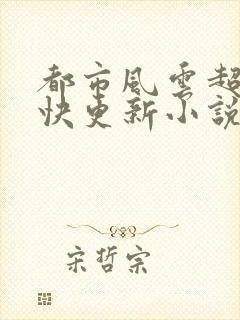 都市風雲超
快更新小說
宋哲宗